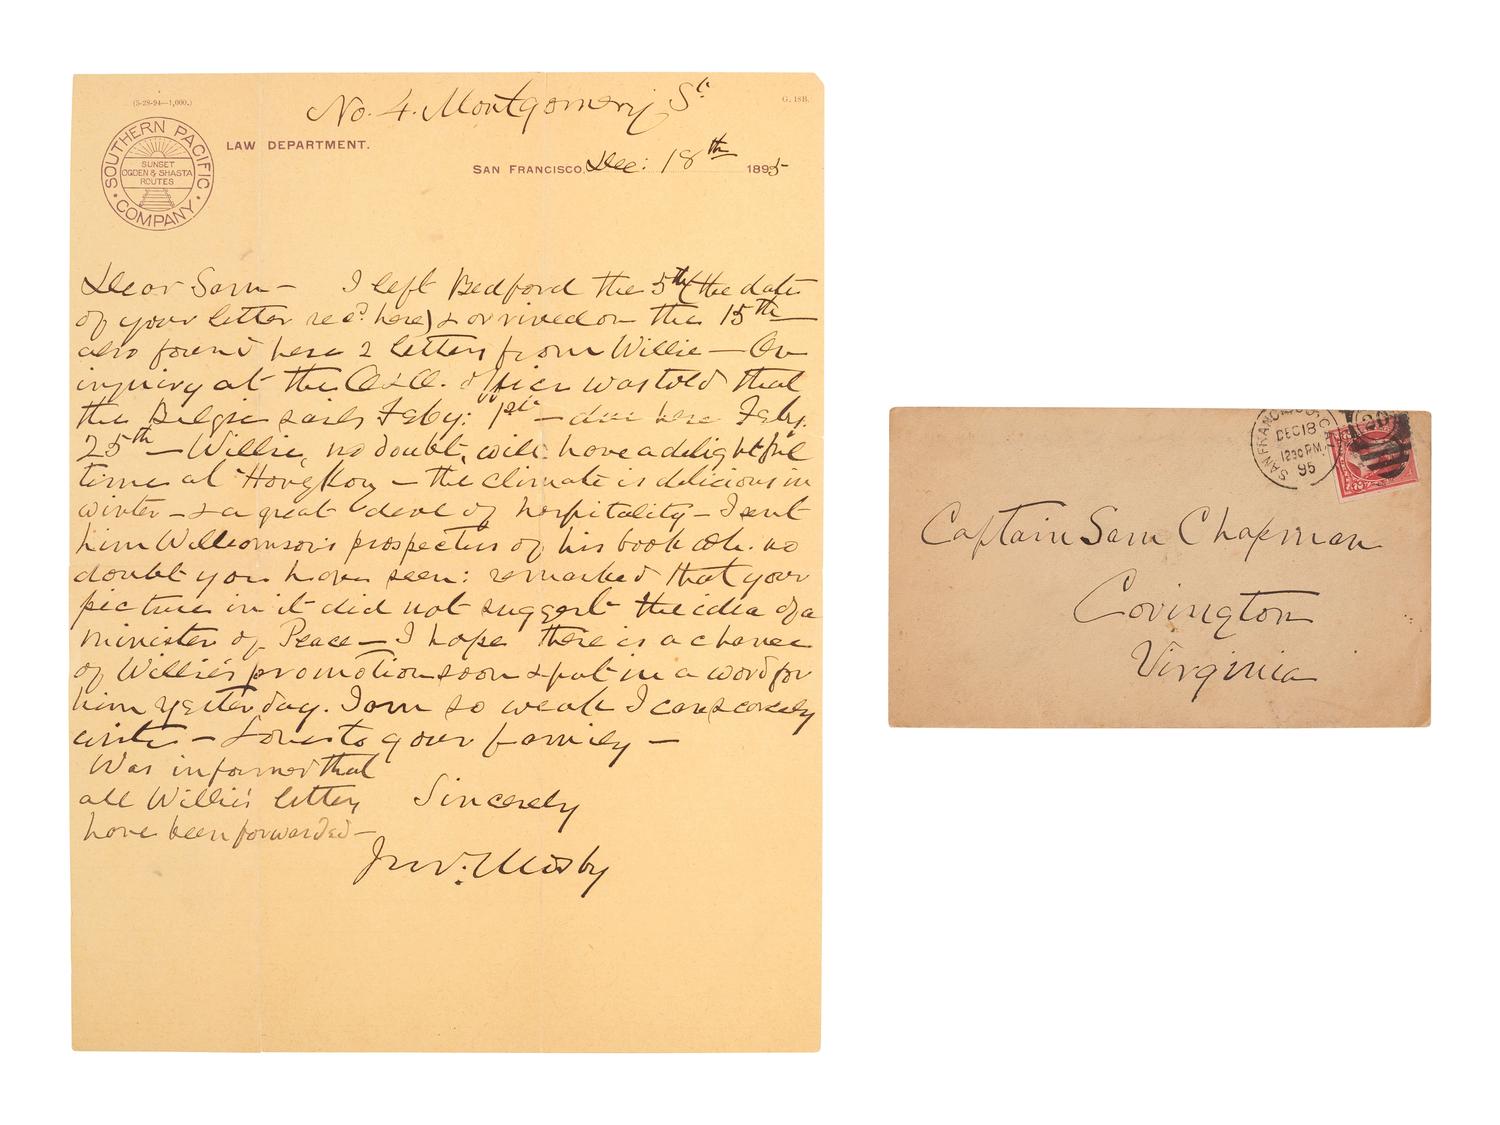 (5-28-94—1,000.)
G. 18B.
No. 4. Montgomery St
SOUTHERN PACIFIC COMPANY
SUNSET
OGDEN & SHASTA
ROUTES
LAW DEPARTMENT.
SAN FRANCISCO, Dec: 18th 1895
Dear Sam — I left Bedford the 5th (the date
of your letter recd here) & arrived on the 15th
also found here 2 letters from Willie — On
inquiry at the O&O. office was told that
the Belgic sails Feby: 1st — due here Feby.
25th — Willie, no doubt, will have a delightful
time at HongKong — the climate is delicious in
winter — & a great deal of hospitality — I sent
him Williamson's prospectus of his book wh. no
doubt you have seen: remarked that your
picture in it did not suggest the idea of a
minister of Peace — I hope there is a chance
of Willie's promotion soon & put in a word for
him yesterday. I am so weak I can scarcely
write — Love to your family —
Was informed that
all Willie's letters
have been forwarded —
Sincerely
Jno. S. Mosby
SAN FRANCISCO, CAL.
DEC 18
1230 PM
95
Captain Sam Chapman
Covington
Virginia